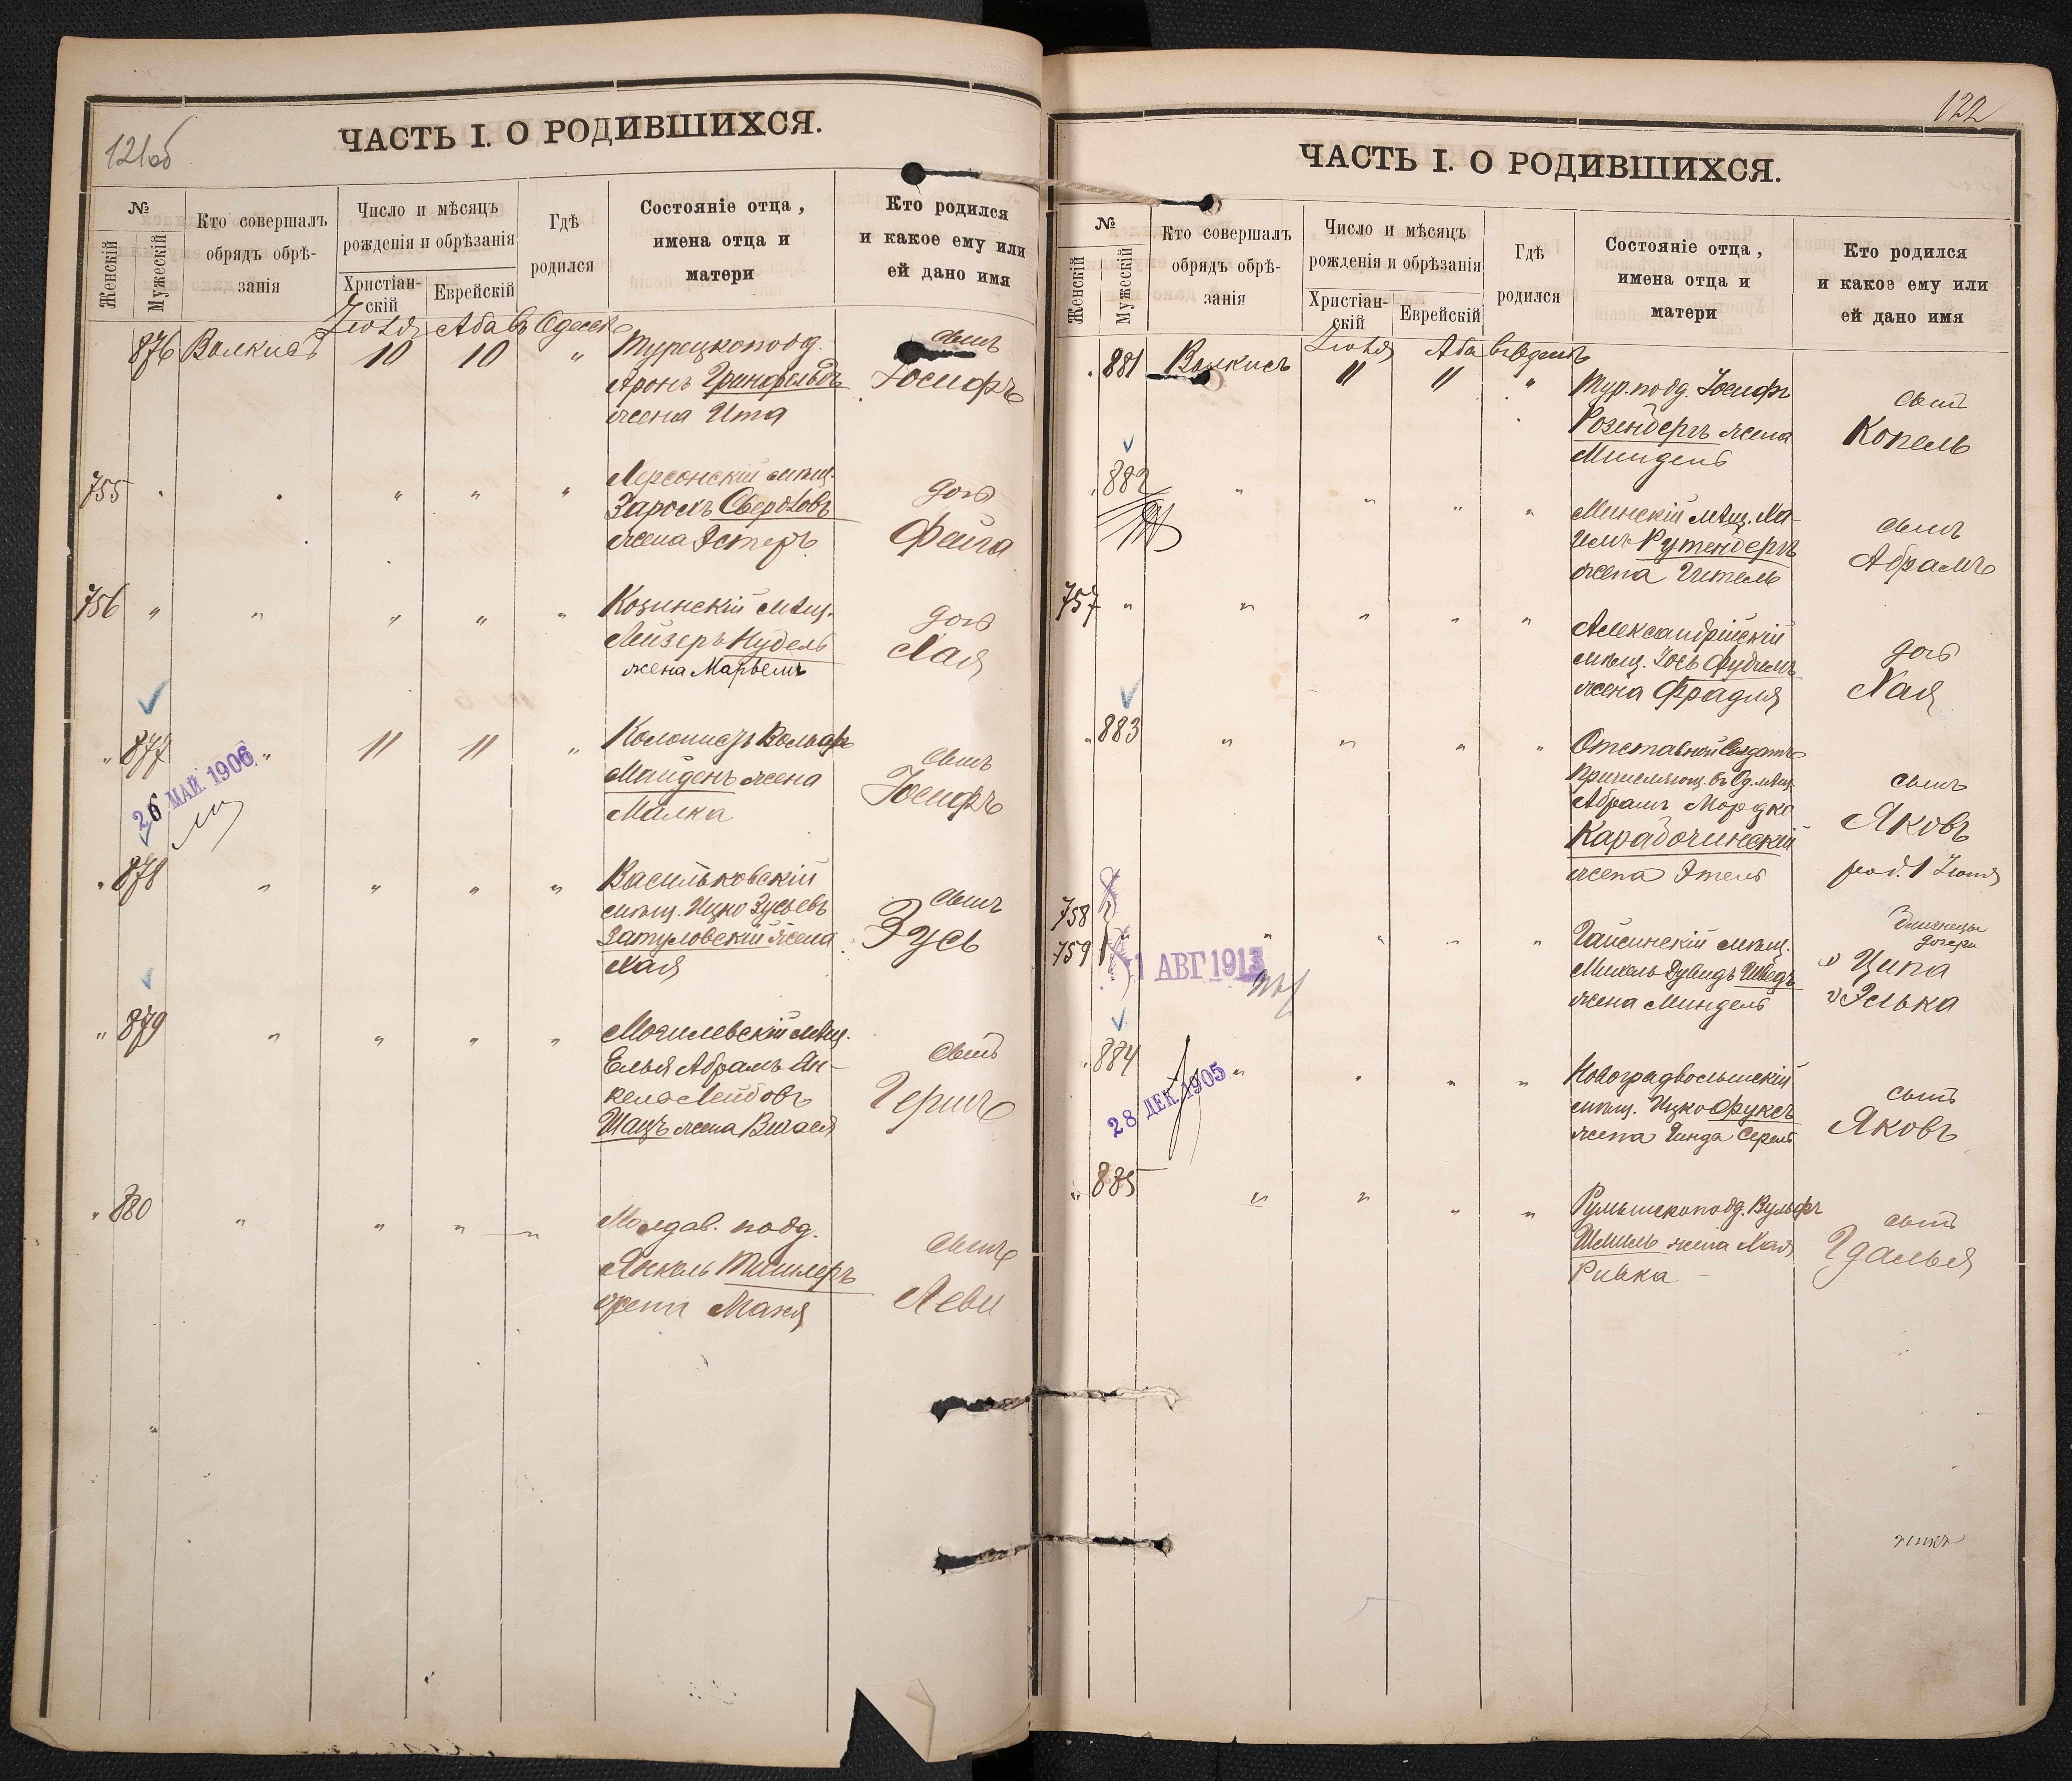 121об
ЧАСТЬ I. О РОДИВШИХСЯ.
№
Женскій
Мужескій
Кто совершалъ
обрядъ обрѣ-
занія
Число и мѣсяцъ
рожденія и обрѣзанія
Христіан-
скій
Еврейскій
Гдѣ
родился
Состояніе отца,
имена отца и
матери
Кто родился
и какое ему или
ей дано имя
Іюля Аба въ Одессѣ
876 Валкисъ 10 10 " Турецкоподд. сынъ
Аронъ Гринфельдъ Іосифъ
жена Ита
755 " " " Херсонскій мѣщ. дочь
Свердловъ
жена Эстеръ Фейга
756 " " " " " мѣщ. дочь
Лейзеръ Нудель Хая
жена
877 " 11 11 " Колонистъ Вольфъ сынъ
26 МАЙ 1906
Майденъ жена Іосифъ
Малка
878 " " " " Васильковскій сынъ
мѣщ. Ицко Зусьевъ Зусь
Затуловскій жена
Хая
" 879 " " " " Могилевскій мѣщ. сынъ
Елья Абрамъ Ян-
кель Лейбовъ Гершъ
Шацъ жена
" 880 " " " " Молдав. подд. сынъ
Янкель Тишлеръ Леви
жена Маня
122
ЧАСТЬ I. О РОДИВШИХСЯ.
№
Женскій
Мужескій
Кто совершалъ
обрядъ обрѣ-
занія
Число и мѣсяцъ
рожденія и обрѣзанія
Христіан-
скій
Еврейскій
Гдѣ
родился
Состояніе отца,
имена отца и
матери
Кто родился
и какое ему или
ей дано имя
Іюля Аба въ Одессѣ
881 Валкисъ 11 11 " Тур. подд. Іосифъ сынъ
Розенбергъ жена Копель
Миндель
882 " " " " Минскій мѣщ. Ха-
имъ Рутенбергъ сынъ
жена Гитель Абрамъ
757 " " " " " Александрійскій
мѣщ. Іось Фудимъ дочь
жена Фрадля Хая
883 " " " " Отставной Солдатъ
въ Од. мѣщ. сынъ
Абрамъ Мордко Яковъ
Карабочинскій
жена Этель род. 1 Іюля
758
759 " " " " Гайсинскій мѣщ. близнецы
дочери
1 АВГ 1913
Михель Дувидъ Шведъ Ципа
жена Миндель Элька
884 " " " " Новоградволынскій
28 ДЕК 1905
мѣщ. Ицко Фуксъ сынъ
жена Гинда Серель Яковъ
" 885 " " " " Румынскоподд. Вульфъ сынъ
жена Хая Гдалья
Ривка